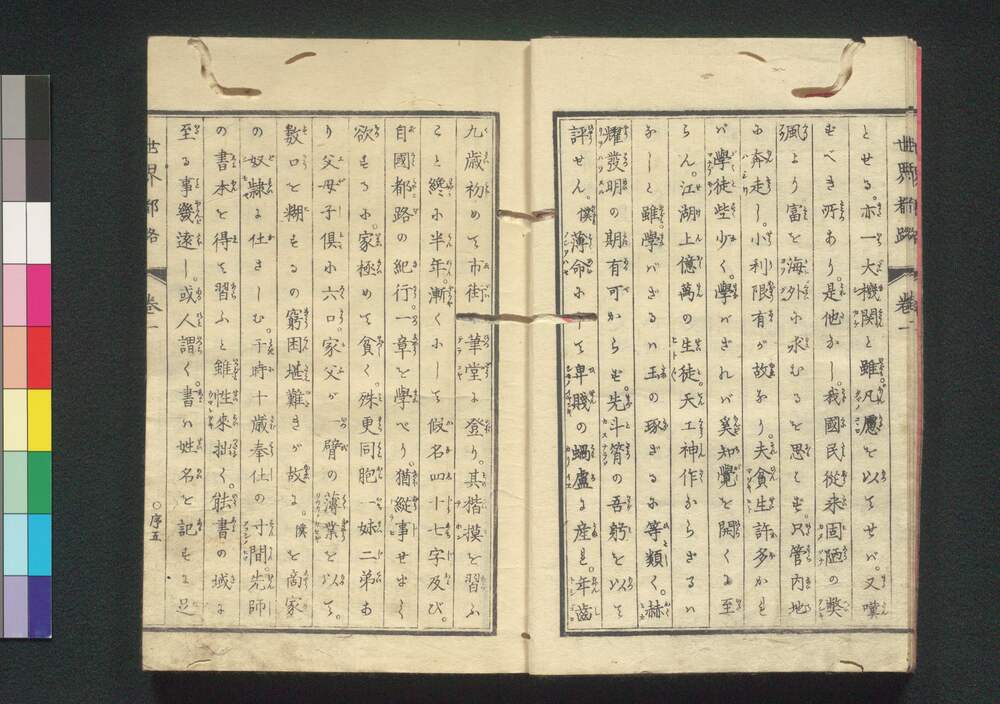 世界都路 卷一
とせる。亦一大機關と雖。凡慮を以てせバ。又嘆
ずべき所あり。是他なし。我國民從来固陋の弊
風より富を海外に求むると思ハず。只管内地
に奔走し。小利限有が故なり。夫貧生許多かれ
バ學徒些少く。學バざれバ奚知覺を開くに至
らん。江湖上億萬の生徒。天工神作ならざるハ
なしと雖。學バざるハ玉の琢ざるに等類く。赫
耀發明の期有可からず。先斗筲の吾躬を以て
評せん。僕薄命にして卑賤の蝸盧に産れ。年齒
九歳初めて市街一筆堂に登り。其楷摸を習ふ
こと纔に半年。漸くにして假名四十七字及び。
自國都路の紀行。一章を學べり。猶縦事せまく
欲するに。家極めて貧く。殊更同胞一妹二弟あ
り父母子倶に六口。家父が一臂の薄業を以て。
數口を糊するの窮困堪難きが故に。僕を商家
の奴隷に仕さしむ。于時十歳奉仕の寸間。先師
の書本を得て習ふと雖。性来拙く。能書の域に
至る事幾遠し。或人謂く。書ハ姓名を記するに足
世界都路 卷一 〇序五